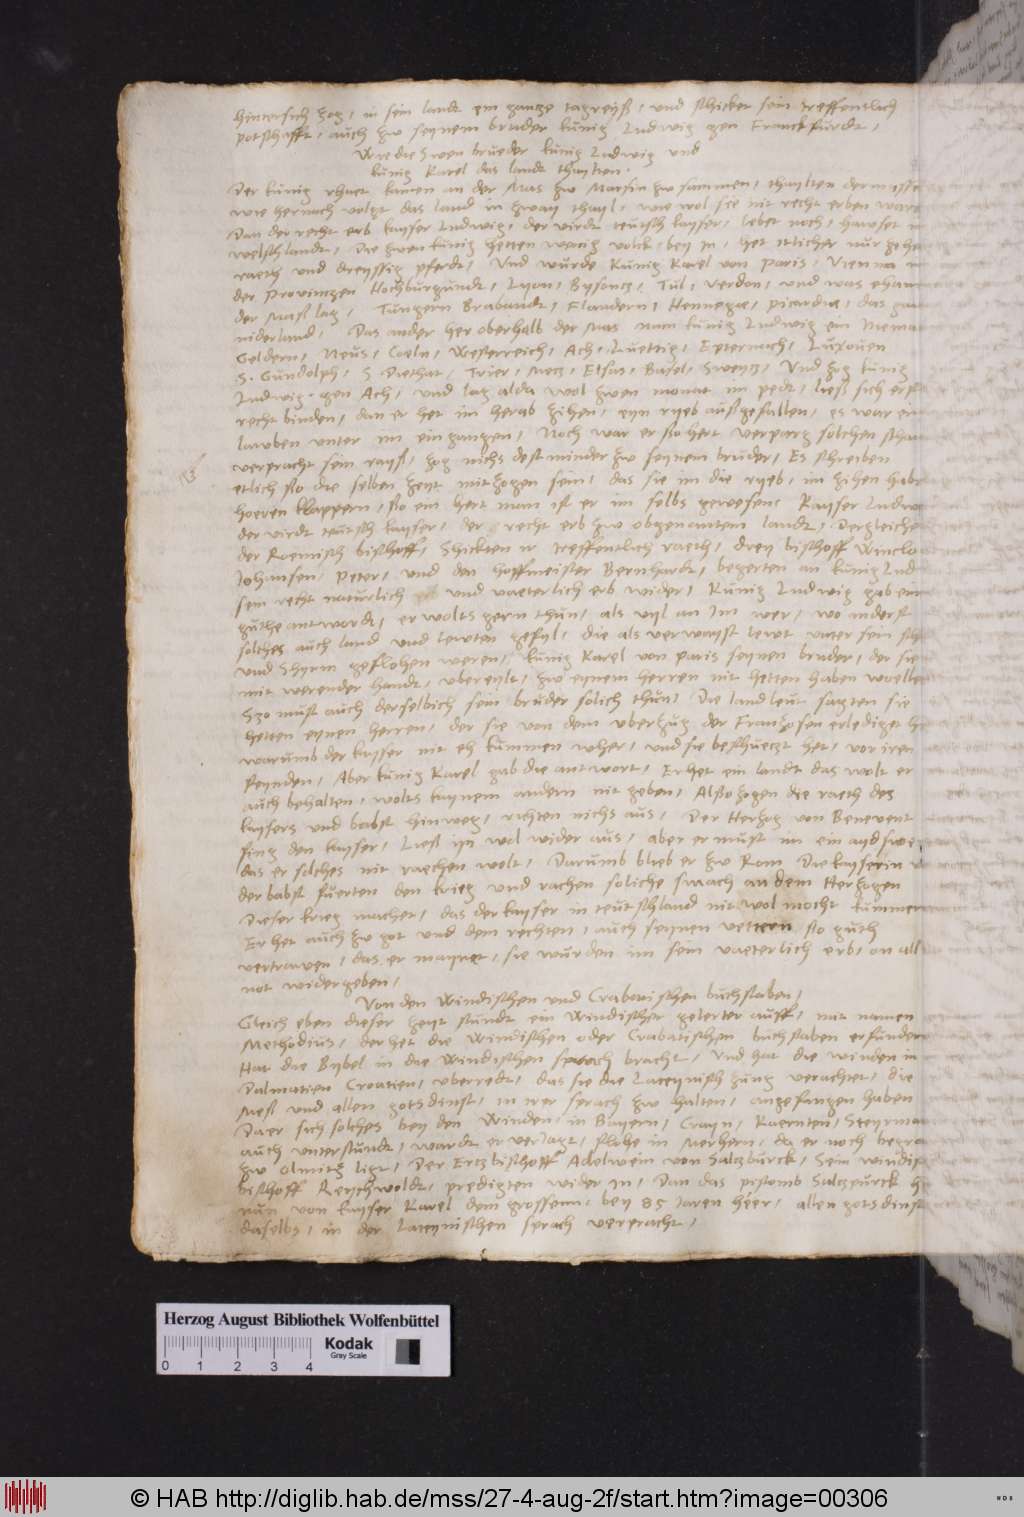 hintersich zog, in sein landt ein gantze tagreyß, und schicket sein treffenlich
potschafft, auch zw seynem bruder künig Ludwig gen Franckfurdt,
Wie die zwen brueder künig Ludwig und
künig Karel das landt thaylten.
Der künig rhaet kamen an der Mas zw Marsin zw sammen, thaylten dermasse
wie hernach volgt das land in zway thayl, wie wol sie nit recht erben ware
Dan der recht erb kayser Ludwig, der virdt teutsch kayser, lebet noch, hawset in
welschlandt, Die zwen künig hetten wenig volck bey in, het itlicher nur
raeth und dreyssig pferdt, Und wurde Künig Karel von Paris, Vienna
der Provintzen Hochburgundt, Lyon, Bysontz, Tul, Verdon, und was
der Maß lag, Tungern Brabandt, Flandern, Hennegaw, Picardia, das
niderland, Das ander her oberhalb der Mas nam künig Ludwig ein
Geldern, Neus, Coeln, Westerreich, Ach, Luettig, Epternach, Luxouen
S. Gundolph, S Diethat, Trier, Metz, Elsas, Basel, Sweytz, Und zog künig
Ludwig gen Ach, und lag alda wol zwen monat im pedt, ließ sich erst
recht binden, dan er het im herab zihen, eyn ryeb außgefallen, es war ein
lawben unter im eingangen, Noch war er so hert verparg solchen
verpracht sein rayß, zog nichs dest minder zw seynem bruder, Es schreiben
etlich so die selben zeyt mit zogen sein, das sie im die ryeb, im zihen
hoeren klappern, so ein hert man ist er im selbs gewesen, Kayser
der virdt teutsch kayser, der recht erb zw obgenantem landt, Dergleiche
der Roemisch bischoff, Schickten ir treffentlich raeth, drey bischoff
Johansen, Peter, und den hoffmeister Bernhardt, begerten an künig
sein recht naturlich und vaeterlich erb wider, Künig Ludwig gab ein
guthe antwordt, er wolts gern thun, als vyl an Im wer, wo inderst
solches auch land und lewten gefyl, die als verwayst lewt unter sein
und Shyrm geflohen weren, künig Karel von paris seynen bruder, der sie
mit werender handt, ubereylt, zw eynem herren nit hetten haben woelle
Szo must auch derselbich sein bruder solich thun, Die landleut sagten sie
hetten eynen herren, der sie von dem uberzug der Franzosen erlediget
warumb der kaysser nit eh kummen wher, und sie beschuetzt het, vor iren
feynden, Aber künig Karel gab die antwort, Er het ein landt das wolt er
auch behalten, wolts kaynem andern nit geben, Alßo zogen die raeth des
kaysers und babst hinweg, richten nichs aus, Der Hertzog von Benevent
fing den kayser, Ließ in wol wider aus, aber er must im ein ayd
das er solches nit raechen wolt, Darumb blieb er zw Rom Die kayserin
der babst fuerten den krieg und rachen soliche smach an dem Hertzogen
Dieser krieg machet, das der kayser in teutschland nit wol mocht kummen
Er het auch zw got und dem rechten, auch seynen vettern so guth
vertrawen, das er maynet, sie wurden im sein vaeterlich erb, on all
not widergeben,
Von den Windischen und Crabatischen buchstaben,
Gleich eben dieser zeyt stundt ein Windischer gelerter auff, mit namen
Methodius, der het die Windischen oder Crabatischen buchstaben erfunden
Hat die Bybel in die Windischen sprach bracht, Und hat die winden in
Dalmatien Croatien, uberredt, das sie die Lateynisch zung verachtet, die
Meß und allen gotsdinst, in irer sprach zw halten, angefangen haben
Da er sich solches bey den Winden, in Bayern, Crayn, Kaernten, Steyrmar
auch unterstundt, wardt er verJagt, flohe in Merhern, da er noch
zw Olmitz ligt, Der Ertzbischoff Adelwein von Saltzburck, Sein
bischoff Reychwoldt, predigten wider In, Dan das pistomb Saltzpurck
nun von kayser Karel dem grossenn, bey 85 Jaren héer, allen gotsdinst
daselbs, in der Lateynischen sprach verpracht,
Herzog August Bibliothek Wolfenbüttel
Kodak
Gray Scale
0 1 2 3 4
© HAB http://diglib.hab.de/mss/27-4-aug-2f/start.htm?image=00306